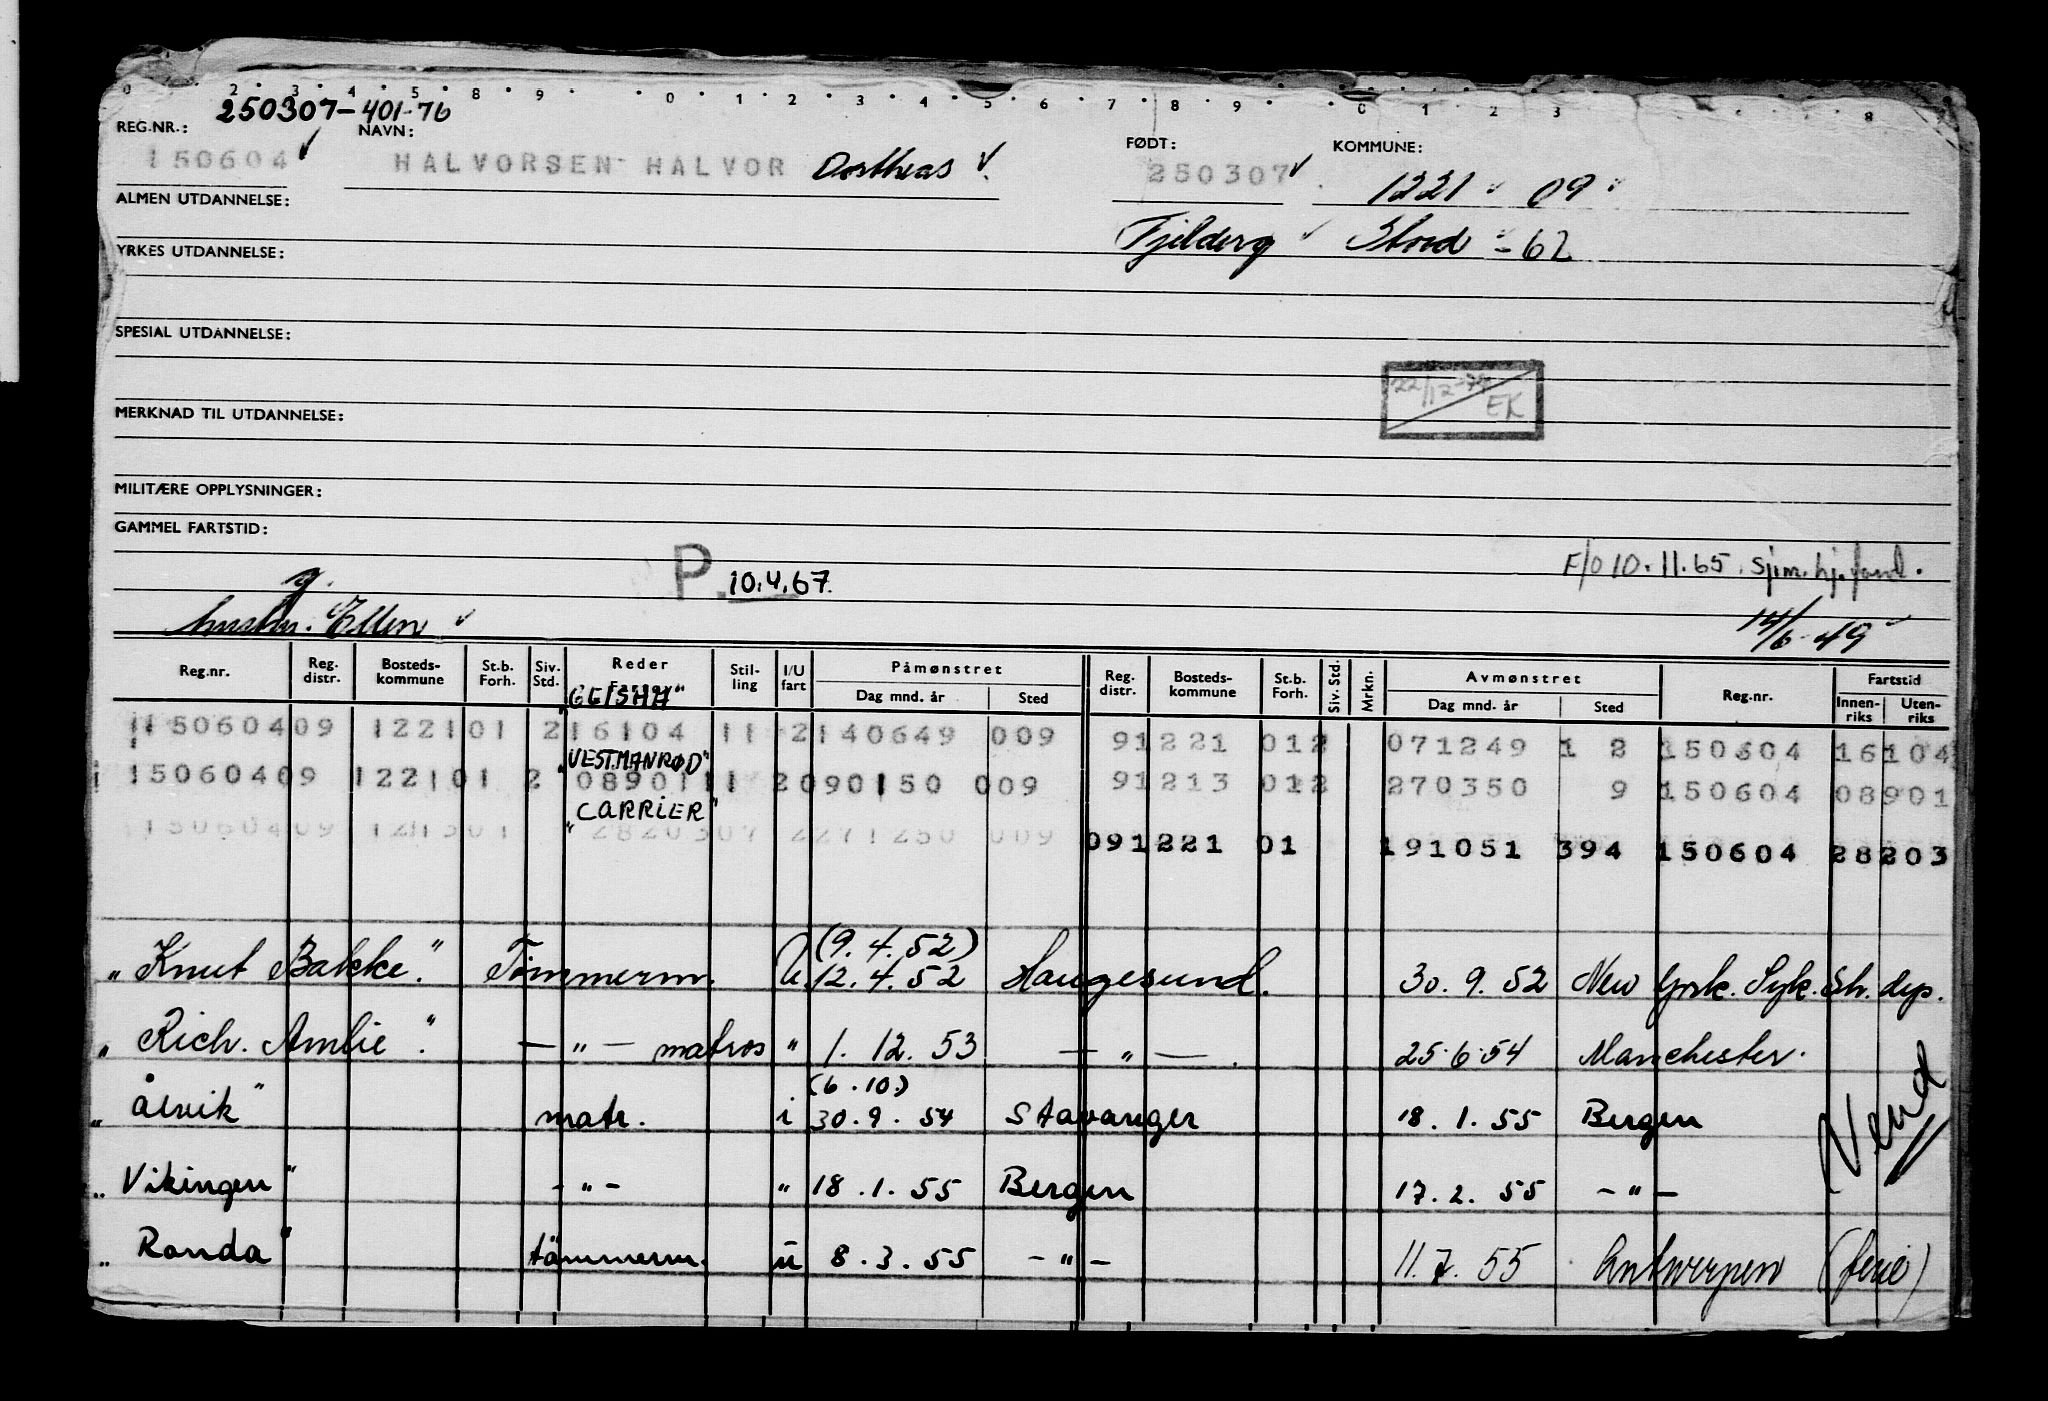 0 2 3 4 5 8 9 0 1 2 3 4 5 6 7 8 9 0 1 2 3 8
250307-401-76
REG.NR.: NAVN: FØDT: KOMMUNE:
150604 HALVORSEN HALVOR Dortheas 250307 1221 09
ALMEN UTDANNELSE:
Fjelberg Stord - 62
YRKES UTDANNELSE:
SPESIAL UTDANNELSE:
22/12-
EK
MERKNAD TIL UTDANNELSE:
MILITÆRE OPPLYSNINGER:
GAMMEL FARTSTID:
P. 10.4.67. F/O 10.11.65. Sjøm. hj.
g.
hustru. Ellen 14/6-49
Reg.nr. Reg. distr. Bosteds-kommune St.b. Forh. Siv. Std. Reder Stil-ling I/U fart Påmønstret Dag mnd. år Sted Reg. distr. Bosteds-kommune St.b. Forh. Siv. Std. Mrkn. Avmønstret Dag mnd. år Sted Reg.nr. Fartstid Innen-riks Uten-riks
"GEISHA"
115060409 122101 216104 11 2140649 009 91221 012 071249 1 2 150604 16104
"VESTMANRØD"
115060409 122101 2 0890111 2090150 009 91213 012 270350 9 150604 08901
"CARRIER"
15060409 121301 2820307 2271250 009 091221 01 191051 394 150604 28203
(9.4.52)
"Knut Bakke." Tømmerm. U. 12.4.52 Haugesund. 30.9.52 New York. Syk. Sh. dep.
"Rich. Amlie". — " — matros " 1. 12. 53 — " — . 25.6.54 Manchester.
(6.10.)
"Ålvik" matr. i 30.9.54 Stavanger 18.1.55 Bergen
Vend
"Vikingen" - " - " 18.1.55 Bergen 17.2.55 - " -
"Ronda" tömmerm. u 8.3.55 - " - 11.7.55 Antwerpen (ferie)